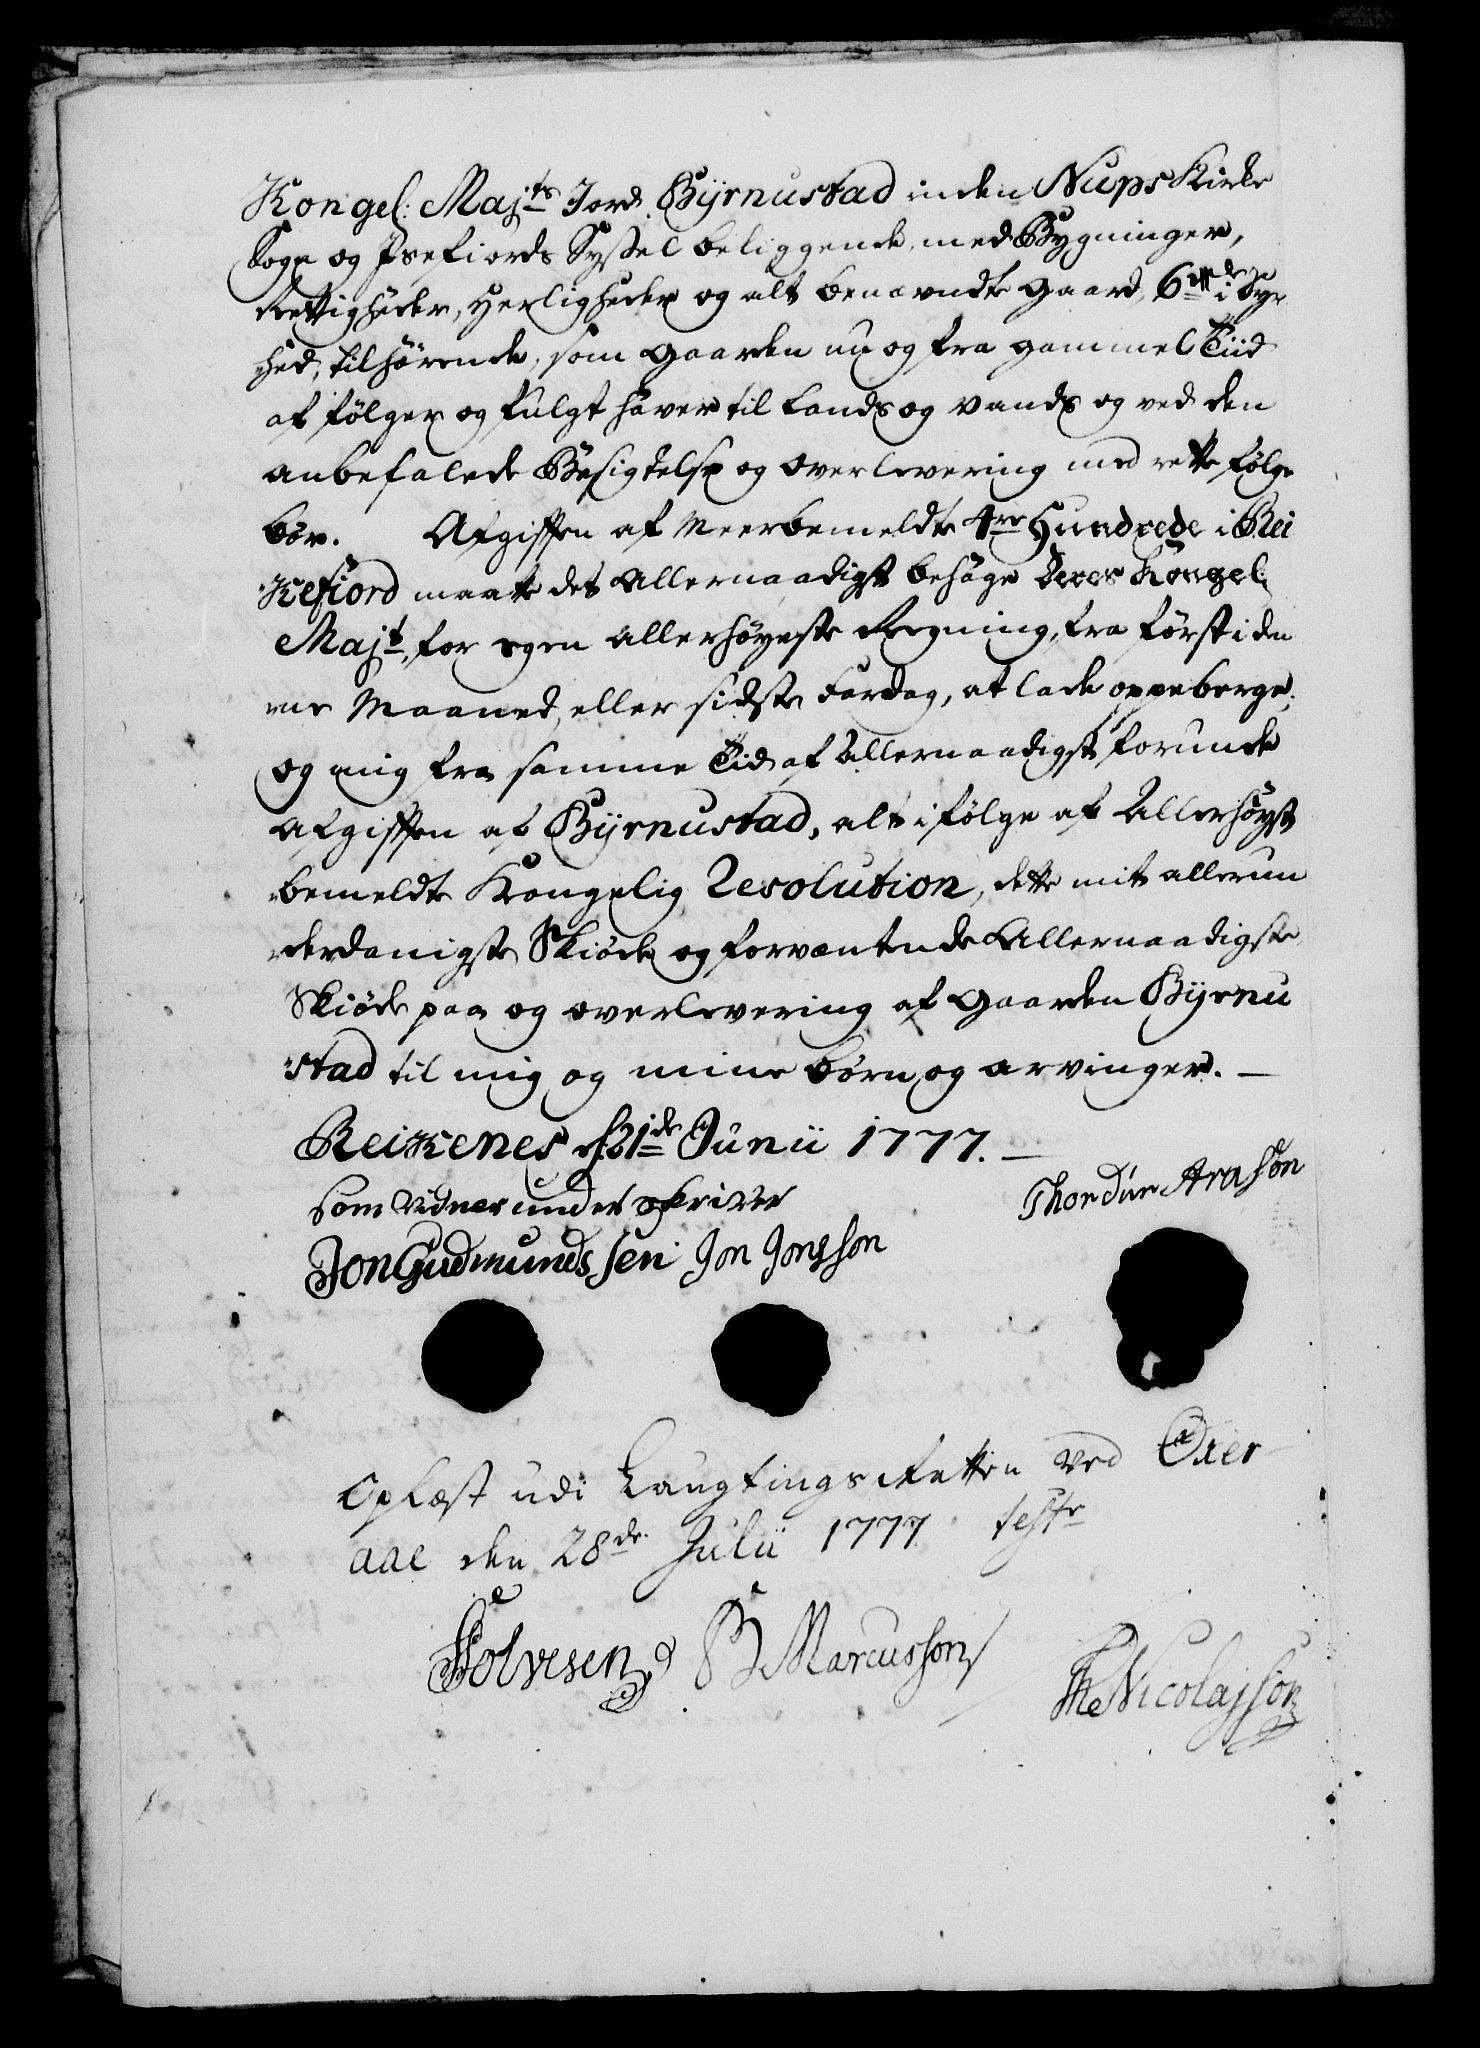 Kongel: Majts Jord Byrnustad inden Nups Kirke
Sogn og Isefiords Syssel beliggende, med Bygninger,
Rettigheder, Herligheder og alt benævndte Gaard, 6 i Dyr
hed, tilhørende, som Gaarden nu og fra gammel Tiid
af følger og fulgt haver til Lands og Vands og ved den
anbefalede Besigtelse og overlevering med rette følge
bør. Afgiften af Meerbemeldte 4re Hundrede i Rei
kefiord maatte det Allernaadigst behage Deres Kongel:
Majt, for egen Allerhøyeste Regning, fra først i den
ne Maaned, eller sidste Fardag, at lade oppeberge;
og mig fra samme Tid af Allernaadigst forunde
Afgiften af Byrnustad, alt ifølge af Allerhøyst
bemeldte Kongelig Resolution, dette mit allerun
derdanigste Skiöde og forventende Allernaadigste
Skiöde paa og overlevering af Gaarden Byrnu
stad til mig og mine börn og arvinger. —
Reikenes d 21de Junii 1777. —
Som Vidner underskriver Thordur Arason
Jon Gudmundssen Jon Jonsson
Oplæst udi Laugtings Retten ved Öxer
aae den 28de Julii 1777 teste
Stolvesen B Marcusson Th Nicolajson